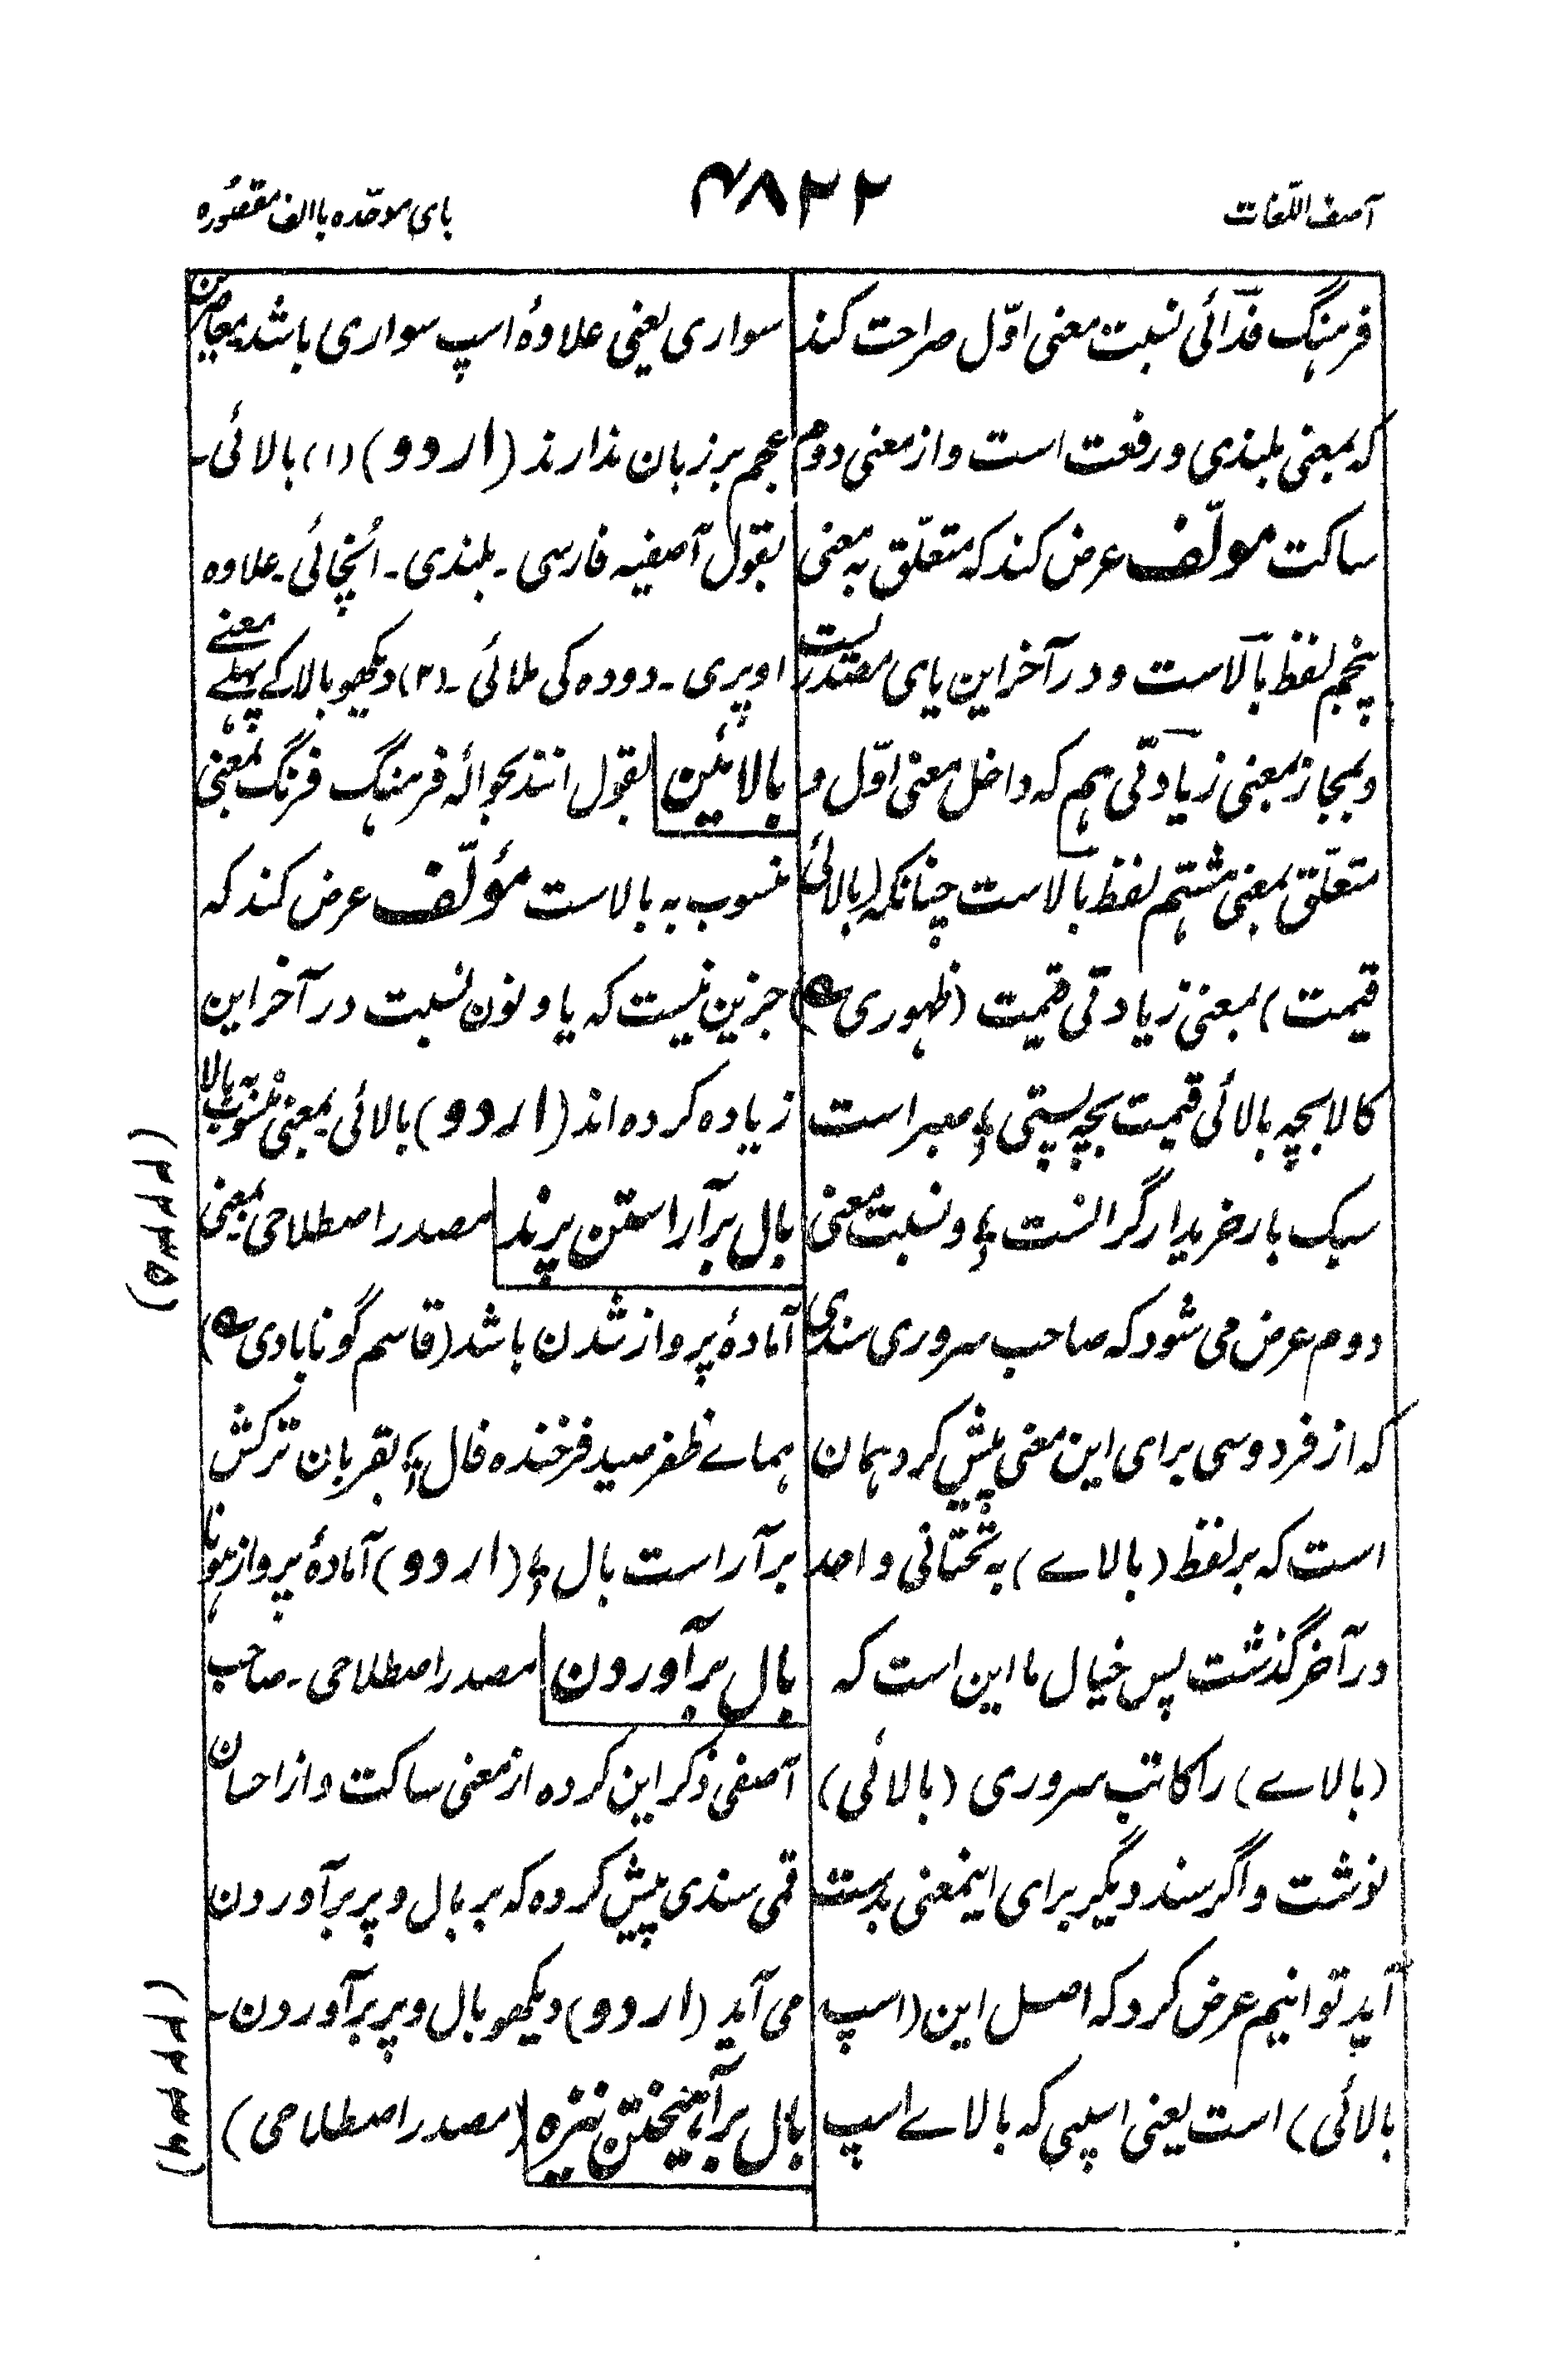 آصف اللّغات
۴۸۲۲
بای موحّده باالف مقصُوره
فرہنگ فدآئی نسبت معنی اوّل صراحت کند
که بمعنی بلندی و رفعت است و از معنی دوم
ساکت مولّف عرض کند که متعلّق به معنی
پنجم لفظ بآلاست و در آخر این یای مصدریست
و بمجاز بمعنی زیادتی ہم که داخل معنی اوّل و
متعلّق بمعنی ہشتم لفظ بآلاست چنانکه (بالائی
قیمت) بمعنی زیادتی قیمت (ظہوری ؎)
کالا بچه بالائی قیمت بچه پستی ؛ معبر است
سبک بار خریدار گرانست ؛ و نسبت معنی
دوم عرض می شود که صاحب سروری سندی
که از فردوسی برای این معنی پیش کرد ہمان
است که بر لفظ (بالاے) به تحتانی واحد
در آخر گذشت پس خیال ما این است که
(بالاے) را کاتب سروری (بالائی)
نوشت و اگر سند دیگر برای اینمعنی بدست
آید توانیم عرض کرد که اصل این (اسپ
بالائی) است یعنی اسپی که بالاے اسپ
سواری یعنی علاوهٔ اسپ سواری باشد معاصرین
عجم بر زبان ندارند (اردو) (۱) بالائی۔
بقول آصفیه فارسی۔ بلندی۔ اُنچائی۔ علاوه
اوپری۔ دوده کی ملائی۔ (۲) دیکھو بالا کے پہلے معنے
بالائین بقول انند بحوالهٔ فرہنگ فرنگ بمعنی
منسوب به بالاست مؤلّف عرض کند که
جزین نیست که یا و نون نسبت در آخر این
زیاده کرده اند (اردو) بالائی بمعنی منسوب به بالا
بال برآراستن پرند مصدر اصطلاحی بمعنی
آمادهٔ پرواز شدن باشد (قاسم گونابادی ؎)
ہماے ظفر صید فرخنده فال ؛ بقربان ترکش
برآراست بال ؛ (اردو) آمادهٔ پرواز ہونا
بال برآوردن مصدر اصطلاحی۔ صاحب
آصفی ذکر این کرده از معنی ساکت و از احسان
قمی سندی پیش کرده که بر بال و پر برآوردن
می آید (اردو) دیکھو بال و پر برآوردن۔
بال برآہیختن نیزه (مصدر اصطلاحی)
(۲۲۳۵)
(۲۲۳۶)